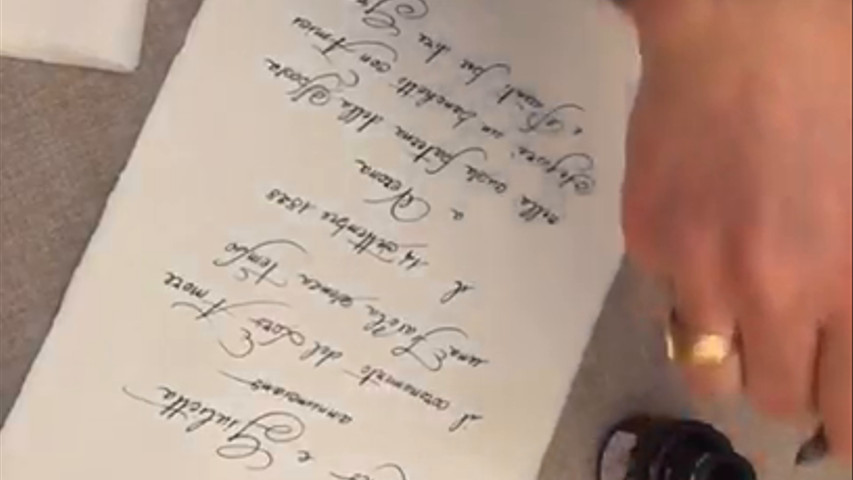 e Giulietta
annunciano
il coronamento del Loro Amore
una Favola senza Tempo
il 14 Settembre
a Verona
nella casa paterna della Sposa
Seguirà un banchetto con Amici
e Parenti per